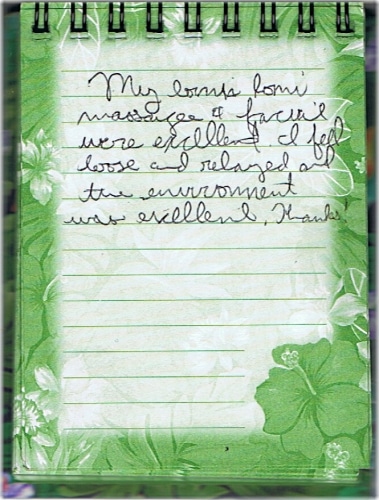 My lomi lomi
massage & facial
were excellent. I feel
loose and relaxed and
the environment
was excellent. Thanks!